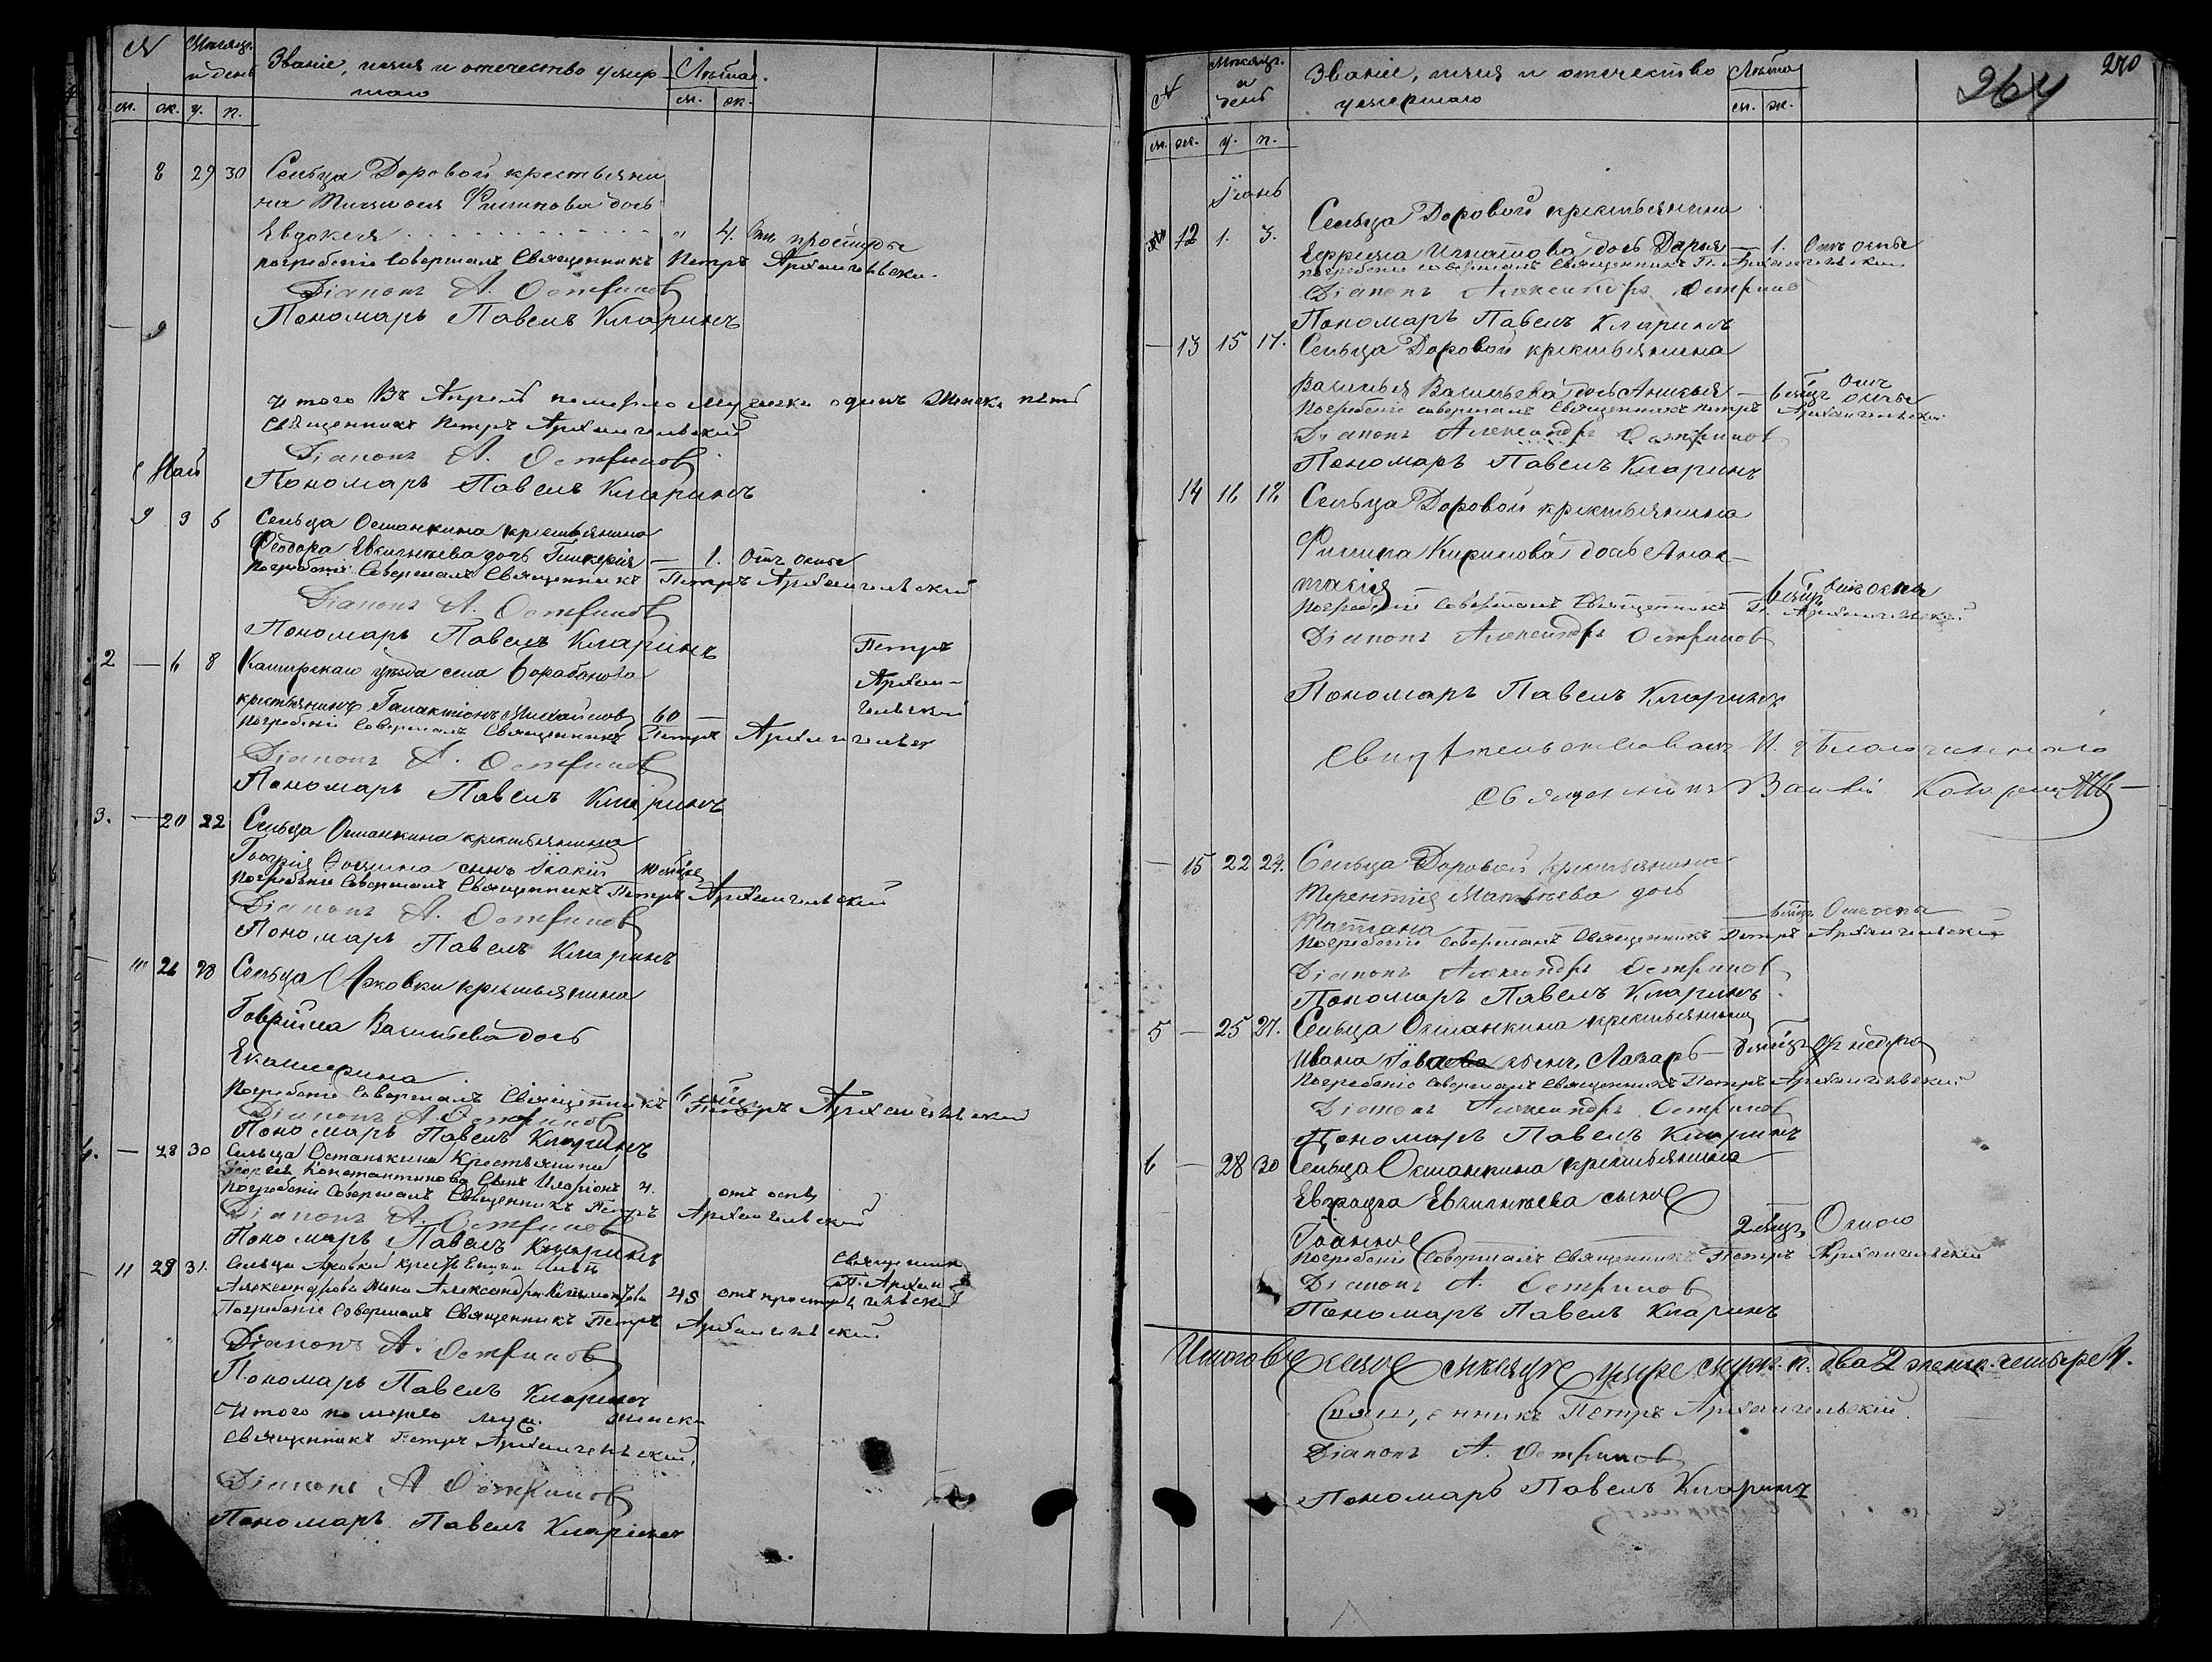 № Месяцъ и день Званіе, имя и отечество умершаго Лѣта.
м. ж. у. п. м. ж.
8 29 30 Сельца Доровой крестьяни
на Филипова дочь
Евдокея " 4. простуды
погребеніе Совершалъ Священникъ Петръ Архангельски.
Діаконъ А. Остриков
Пономарь Павелъ Кларинъ
— 9
Итого Въ Апреле померло мужеска одинъ женска пять
Священникъ Петръ Архангельский
Діаконъ А. Остриков
Пономарь Павелъ Кларинъ
Май
9 3 5 Сельца Останкина крестьянина
Феодора дочь Гликерія — 1. Отъ оспы
Погребеніе Совершалъ Священникъ Петръ Архангельский
Діаконъ А. Остриков
Пономарь Павелъ Кларинъ
2 — 6 8 Каширскаго уѣзда села Барабаново Петръ
крестьянинъ Галактіонъ Михайловъ 60 — Архангельский
Погребеніе Совершалъ Священникъ Петръ Архангельск
Діаконъ А. Остриков
Пономарь Павелъ Кларинъ
3. — 20 22 Сельца Останкина крестьянина
сынъ
Погребеніе Совершалъ Священникъ Петръ Архангельский
Діаконъ А. Остриков
Пономарь Павелъ Кларинъ
— 10 26 28 Сельца крестьянина
Гаврійла Васильева дочь
Екатерина
Погребеніе Совершалъ Священникъ Петръ Архангельский
Діаконъ А. Остриков
Пономарь Павелъ Кларинъ
4. — 28 30 Сельца Останькина Крестьянина
Константинова Сынъ Иларіонъ 4. отъ оспы
Погребеніе Совершалъ Священникъ Петръ Архангельский
Діаконъ А. Остриков
Пономарь Павелъ Кларинъ
— 11 29 31. Сельца Священник
Александрова Жена Александра 45 отъ П. Архангельский
Погребеніе Совершалъ Священникъ Петръ Архангельский
Діаконъ А. Остриков
Пономарь Павелъ Кларинъ
Итого померло муж. женска
Священникъ Петръ Архангельский,
Діаконъ А Остриков
Пономарь Павелъ Кларинъ
270
264
№ Месяцъ и день Званіе, имя и отечество умершаго Лѣта
м. ж. у. п. м. ж.
Іюнь
12 1. 3. Сельца Доровой крестьянина
Ефрема Игнатова дочь Дарья — 1. Отъ оспы
погребеніе совершалъ Священникъ П. Архангельский
Діаконъ Александръ Остриков
Пономарь Павелъ Кларинъ
— 13 15 17. Сельца Доровой крестьянина
Василья Васильева дочь — 6 мѣсц. Отъ оспы
Погребеніе совершалъ Священникъ Петръ Архангельский
Діаконъ Александръ Остриков
Пономарь Павелъ Кларинъ
14 16 18 Сельца Доровой крестьянина
Филипа Кирилова дочь Анас-
тасія — 6 мѣсц. Отъ оспы
Погребеніе Совершалъ Священникъ П. Архангельский
Діаконъ Александръ Остриков
Пономарь Павелъ Кларинъ
Свидѣтельствовалъ И. д. Благочиннаго
Священникъ
— 15 22 24. Сельца Доровой крестьянина
Терентія Матвѣева дочь
Татіана — 6 мѣсц. Отъ оспы
Погребеніе Совершалъ Священникъ Петръ Архангельский
Діаконъ Александръ Остриков
Пономарь Павелъ Кларинъ
5 — 25 27. Сельца Останкина крестьянина
Ивана сынъ Лазарь —
Погребеніе Совершалъ Священникъ Петръ Архангельский
Діаконъ Александръ Остриков
Пономарь Павелъ Кларинъ
6 — 28 30 Сельца Останкина крестьянина
сынъ
Іоаннъ 2 мѣсц. Оспою
Погребеніе Совершалъ Священникъ Петръ Архангельский
Діаконъ А. Остриков
Пономарь Павелъ Кларинъ
Итого въ мѣсяцѣ муж. п. два 2 женск. четыре 4.
Священникъ Петръ Архангельскій.
Діаконъ А. Остриков
Пономарь Павелъ Кларинъ